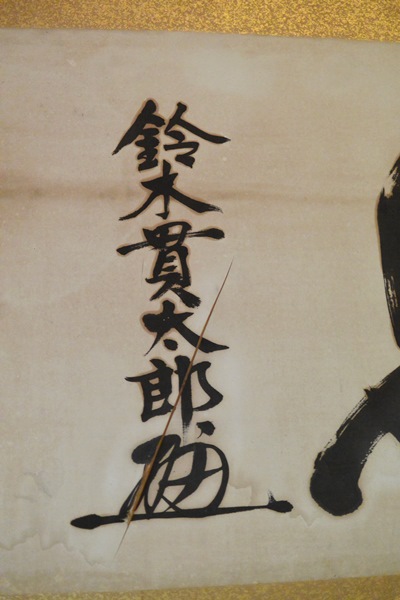 鈴木貫太郎